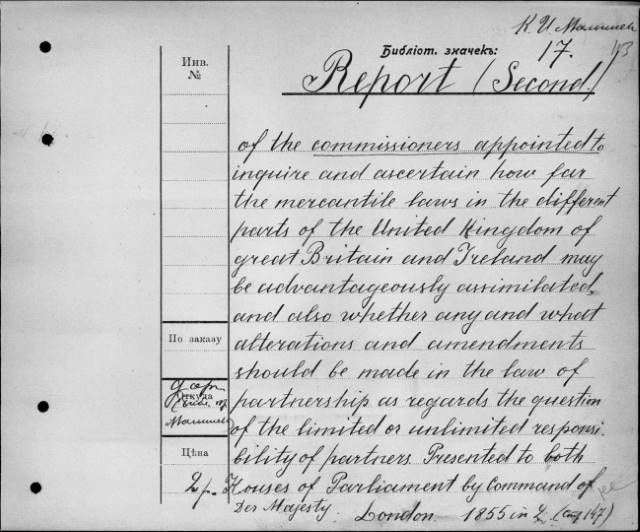 К. И. Малышев
43
Библіот. значекъ:
17.
Инв.
№
Report (Second)
of the commissioners appointed to
inquire and ascertain how far
the mercantile laws in the different
parts of the United Kingdom of
great Britain and Ireland may
be advantageously assimilated,
and also whether any and what
alterations and amendments
should be made in the law of
partnership as regards the question
of the limited or unlimited responsi-
bility of partners. Presented to both
Houses of Parliament by Command of
Der Majesty. London. 1855 in
По заказу
дар
Откуда
Малышев
Цѣна
2 р.